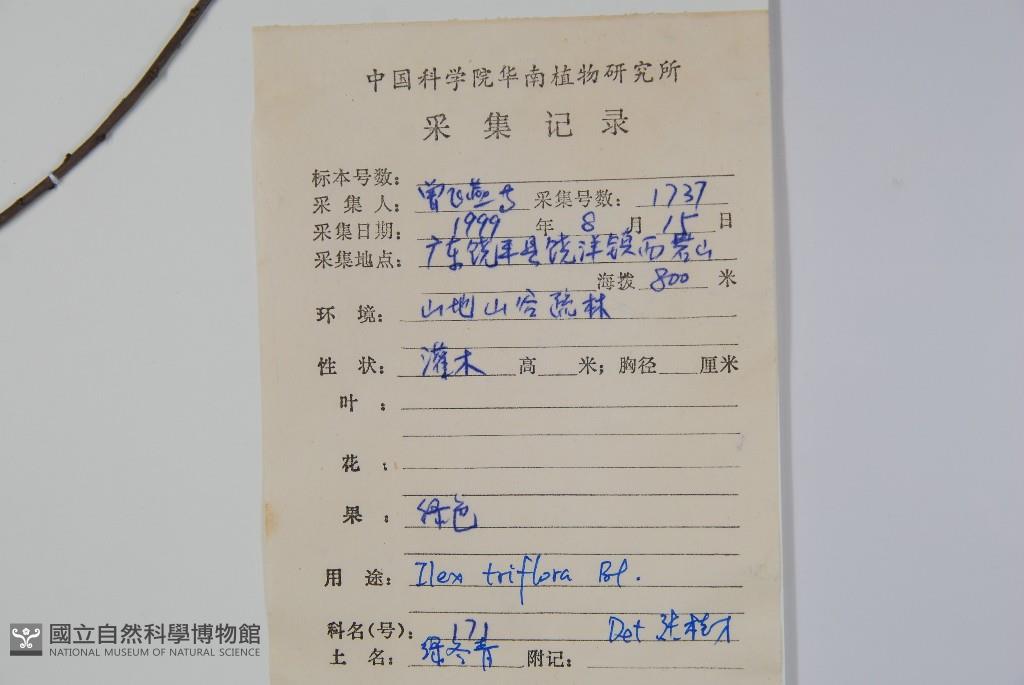 中国科学院华南植物研究所
采集记录
标本号数：
采集人：曾飞燕等 采集号数：1737
采集日期：1999年8月15日
采集地点：广东饶平县饶洋镇西岩山
海拨 800 米
环境：山地山谷疏林
性状：灌木 高 米；胸径 厘米
叶：
花：
果：绿色
用途：Ilex triflora Bl.
科名(号)：171 Det 张桂才
土名：绿冬青 附记：
國立自然科學博物館
NATIONAL MUSEUM OF NATURAL SCIENCE